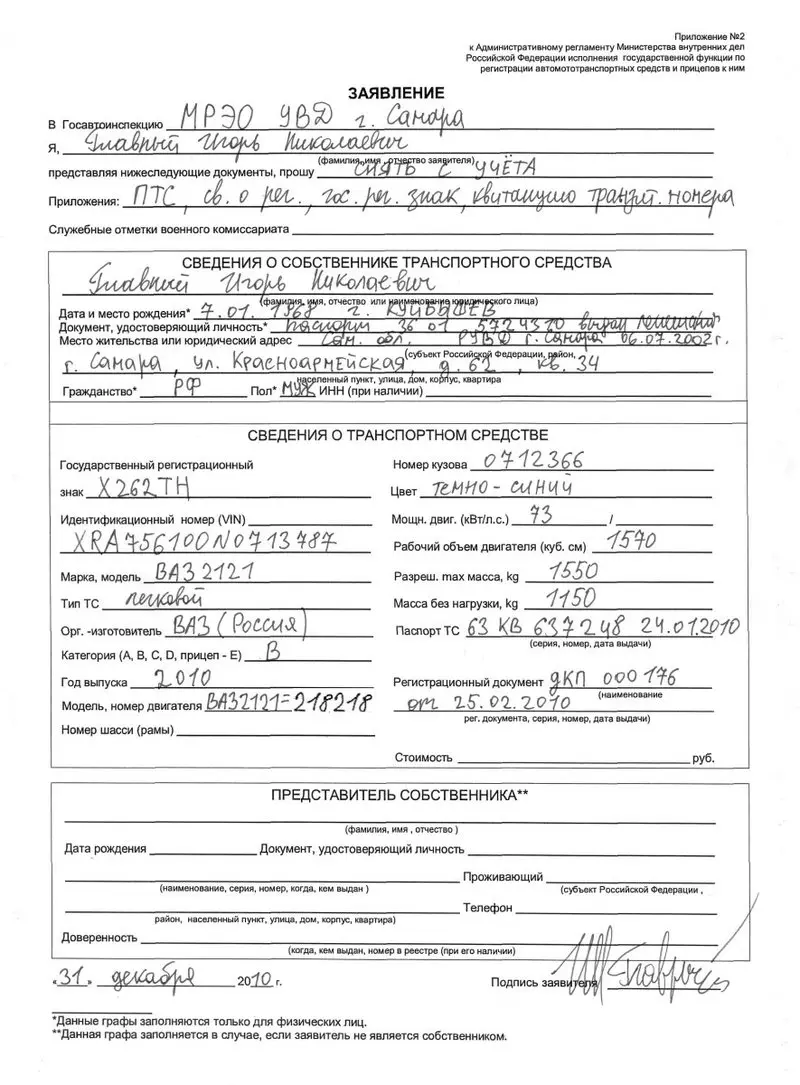 Приложение №2
к Административному регламенту Министерства внутренних дел
Российской Федерации исполнения государственной функции по
регистрации автомототранспортных средств и прицепов к ним
ЗАЯВЛЕНИЕ
В Госавтоинспекцию МРЭО УВД г. Самара
Я, Главный Игорь Николаевич
(фамилия, имя, отчество заявителя)
представляя нижеследующие документы, прошу СНЯТЬ С УЧЁТА
Приложения: ПТС, св. о рег., гос. рег. знак, квитанцию транзит. номера
Служебные отметки военного комиссариата
СВЕДЕНИЯ О СОБСТВЕННИКЕ ТРАНСПОРТНОГО СРЕДСТВА
Главный Игорь Николаевич
(фамилия, имя, отчество или наименование юридического лица)
Дата и место рождения* 7.01.1968 г. КУЙБЫШЕВ
Документ, удостоверяющий личность* паспорт 36 01 5724370 выдан
Место жительства или юридический адрес Сам. обл. РУВД г. Самара 06.07.2002 г.
г. Самара, ул. Красноармейская, д. 62, кв. 34
(субъект Российской Федерации, район,
населенный пункт, улица, дом, корпус, квартира
Гражданство* РФ Пол* МУЖ ИНН (при наличии)
СВЕДЕНИЯ О ТРАНСПОРТНОМ СРЕДСТВЕ
Государственный регистрационный
знак Х262ТН
Идентификационный номер (VIN)
XRA756100N0713787
Марка, модель ВАЗ 2121
Тип ТС легковой
Орг. -изготовитель ВАЗ (Россия)
Категория (А, В, С, D, прицеп - Е) В
Год выпуска 2010
Модель, номер двигателя ВАЗ2121=218218
Номер шасси (рамы)
Номер кузова 0712366
Цвет ТЕМНО-СИНИЙ
Мощн. двиг. (кВт/л.с.) 73 /
Рабочий объем двигателя (куб. см) 1570
Разреш. max масса, kg 1550
Масса без нагрузки, kg 1150
Паспорт ТС 63 КВ 637248 24.01.2010
(серия, номер, дата выдачи)
Регистрационный документ ДКП 000176
(наименование
от 25.02.2010
рег. документа, серия, номер, дата выдачи)
Стоимость руб.
ПРЕДСТАВИТЕЛЬ СОБСТВЕННИКА**
(фамилия, имя , отчество )
Дата рождения Документ, удостоверяющий личность
Проживающий
(наименование, серия, номер, когда, кем выдан ) (субъект Российской Федерации ,
Телефон
район, населенный пункт, улица, дом, корпус, квартира)
Доверенность
(когда, кем выдан, номер в реестре (при его наличии)
«31» декабря 2010 г. Подпись заявителя
*Данные графы заполняются только для физических лиц.
**Данная графа заполняется в случае, если заявитель не является собственником.